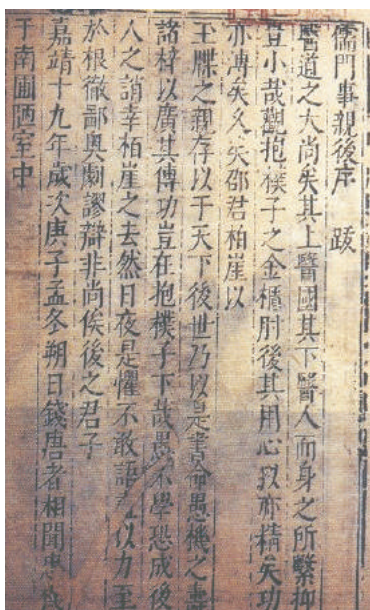 儒門事親後序 跋
醫道之大尚矣其上醫國其下醫人而身之所繫抑
豈小哉觀抱樸子之金櫃肘後其用心以亦精矣功
亦溥矣久矣邵君柏崖以
王牒之親存以于天下後世乃以是書命愚機之
諸梓以廣其傳功豈在抱樸子下哉愚不學恐成後
人之誚幸柏崖之去然日夜是懼不敢語 以力至
於根徹鄙奧剬謬辯非尚俟後之君子
嘉靖十九年歲次庚子孟冬朔日錢唐者相聞忠
于南圃陋室中